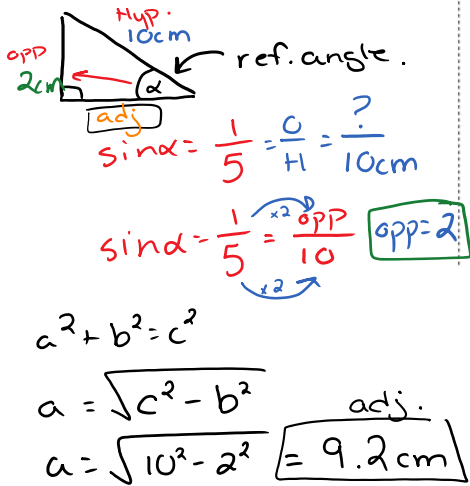 Hyp.
10cm
opp
2cm
α
ref. angle.
adj
sinα = 1/5 = O/H = ?/10cm
×2
sinα = 1/5 = opp/10
opp=2
×2
a² + b² = c²
a = √c² - b²
adj.
a = √10² - 2² = 9.2cm